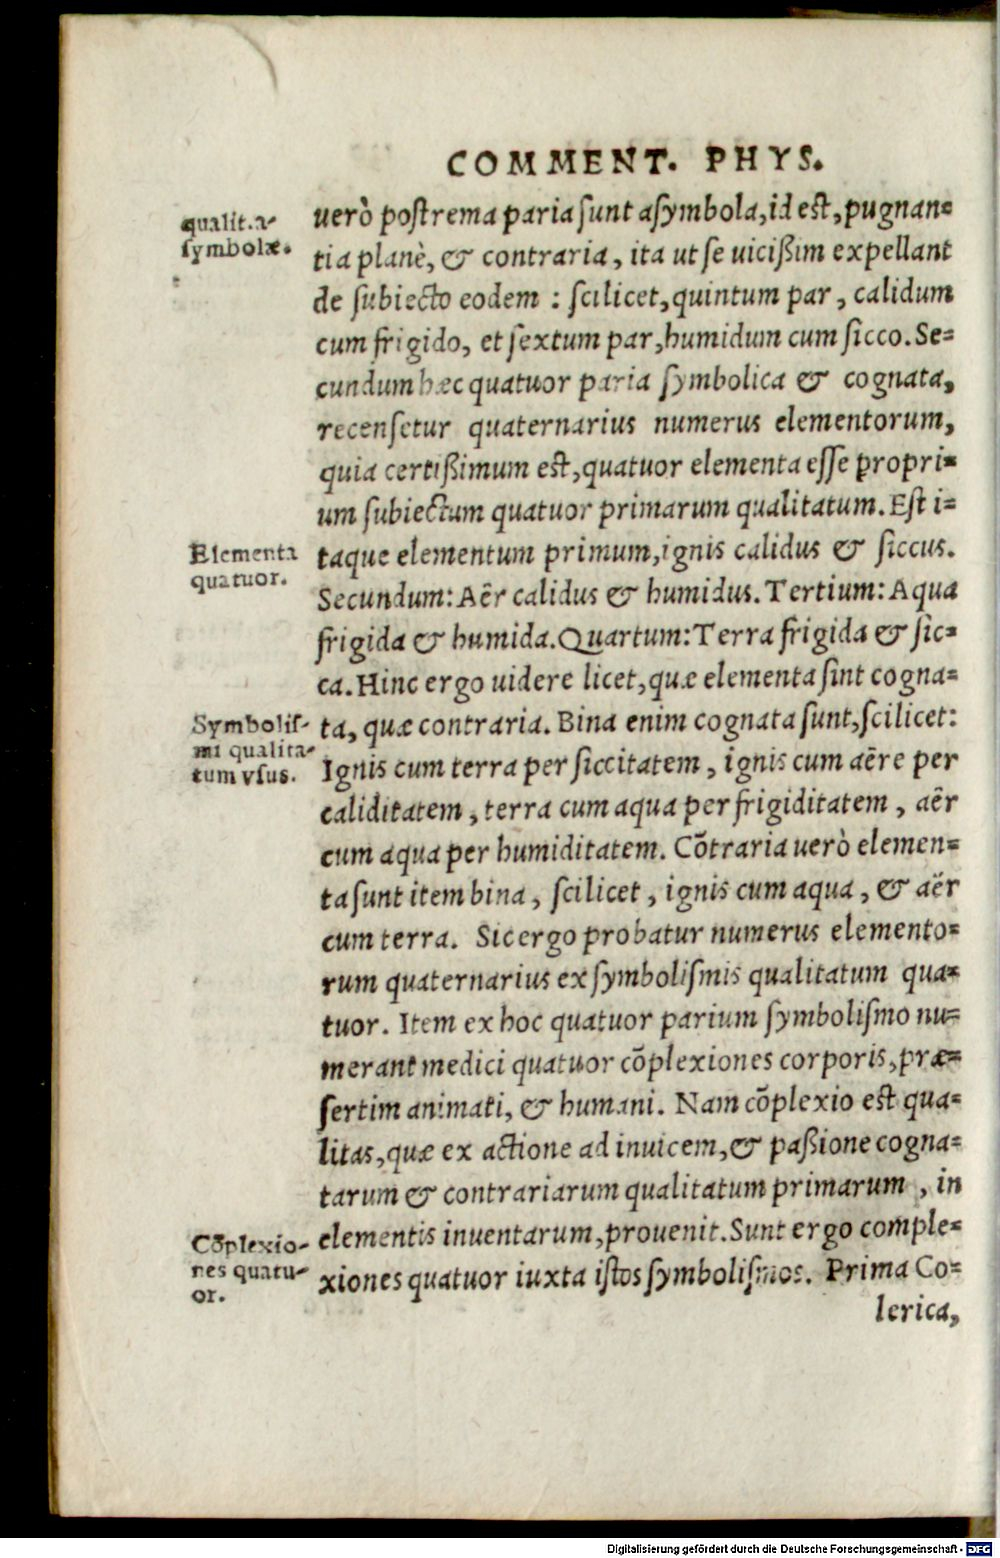 COMMENT. PHYS.
qualit.a-
symbolæ.
uerò poſtrema paria ſunt aſymbola, id eſt, pugnan=
tia planè, & contraria, ita ut ſe uicißim expellant
de ſubiecto eodem : ſcilicet, quintum par, calidum
cum frigido, et ſextum par, humidum cum ſicco. Se=
cundum hæc quatuor paria ſymbolica & cognata,
recenſetur quaternarius numerus elementorum,
quia certißimum eſt, quatuor elementa eſſe propri=
um ſubiectum quatuor primarum qualitatum. Eſt i=
Elementa
quatuor.
taque elementum primum, ignis calidus & ſiccus.
Secundum: Aër calidus & humidus. Tertium: Aqua
frigida & humida. Quartum: Terra frigida & ſic=
ca. Hinc ergo uidere licet, quæ elementa ſint cogna=
Symboliſ-
mi qualita-
tum vſus.
ta, quæ contraria. Bina enim cognata ſunt, ſcilicet:
Ignis cum terra per ſiccitatem, ignis cum aëre per
caliditatem, terra cum aqua per frigiditatem, aër
cum aqua per humiditatem. Cōtraria uerò elemen=
ta ſunt item bina, ſcilicet, ignis cum aqua, & aër
cum terra. Sic ergo probatur numerus elemento=
rum quaternarius ex ſymboliſmis qualitatum qua=
tuor. Item ex hoc quatuor parium ſymboliſmo nu=
merant medici quatuor cōplexiones corporis, præ=
ſertim animati, & humani. Nam cōplexio eſt qua=
litas, quæ ex actione ad inuicem, & paßione cogna=
tarum & contrariarum qualitatum primarum, in
Cōplexio-
nes quatu-
or.
elementis inuentarum, prouenit. Sunt ergo comple=
xiones quatuor iuxta iſtos ſymboliſmos. Prima Co=
lerica,
Digitalisierung gefördert durch die Deutsche Forschungsgemeinschaft - DFG